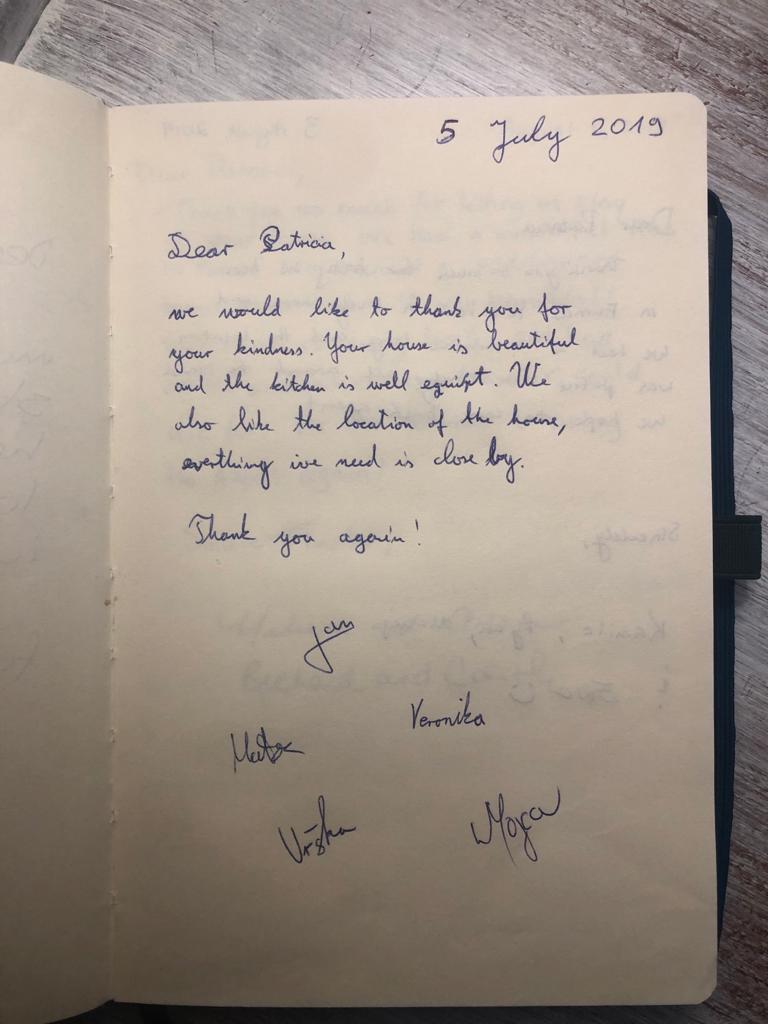 5 July 2019
Dear Patricia,
we would like to thank you for
your kindness. Your house is beautiful
and the kitchen is well equipt. We
also like the location of the house,
everthing we need is close by.
Thank you again!
Jan
Veronika
Matex
Urška
Mojca